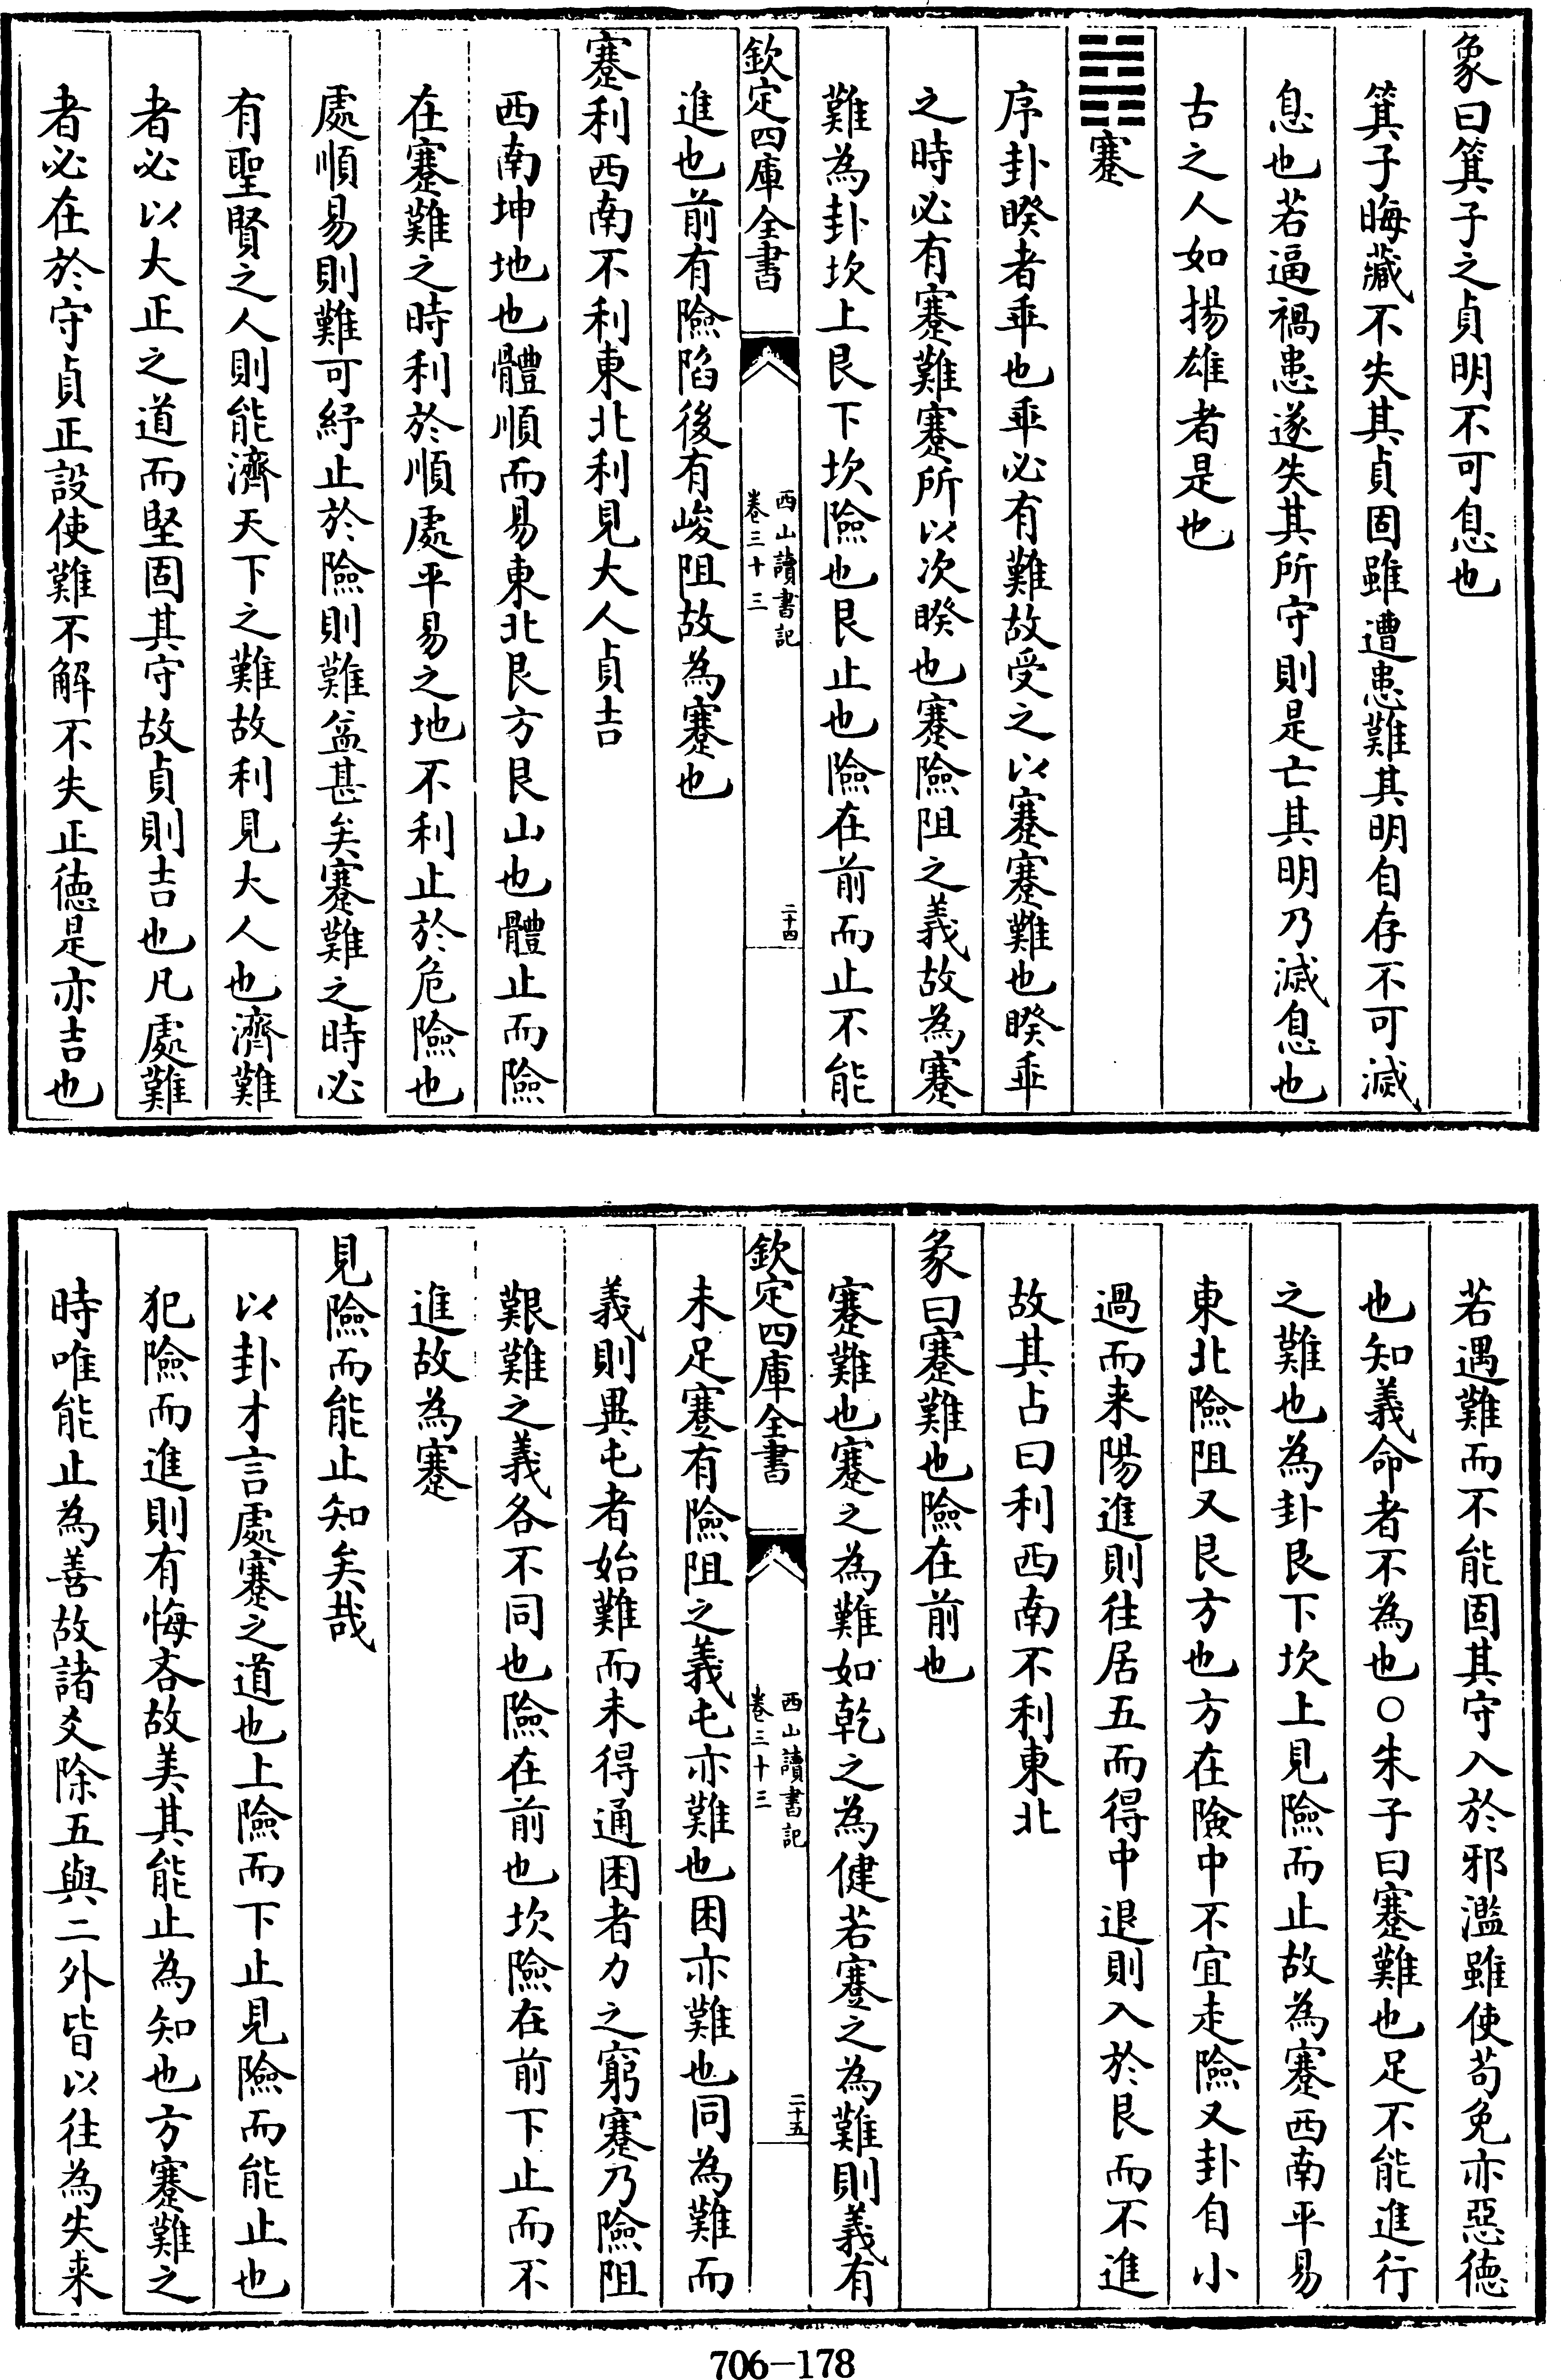 象曰箕子之貞明不可息也
箕子晦藏不失其貞固雖遭患難其明自存不可滅
息也若逼禍患遂失其所守則是亡其明乃滅息也
古之人如揚雄者是也
䷦蹇
序卦睽者乖也乖必有難故受之以蹇蹇難也睽乖
之時必有蹇難蹇所以次睽也蹇險阻之義故為蹇
難為卦坎上艮下坎險也艮止也險在前而止不能
欽定四庫全書
西山讀書記
卷三十三
二十四
進也前有險陷後有峻阻故為蹇也
蹇利西南不利東北利見大人貞吉
西南坤地也體順而易東北艮方艮山也體止而險
在蹇難之時利於順處平易之地不利止於危險也
處順易則難可紓止於險則難益甚矣蹇難之時必
有聖賢之人則能濟天下之難故利見大人也濟難
者必以大正之道而堅固其守故貞則吉也凡處難
者必在於守貞正設使難不解不失正德是亦吉也
若遇難而不能固其守入於邪濫雖使苟免亦惡德
也知義命者不為也○朱子曰蹇難也足不能進行
之難也為卦艮下坎上見險而止故為蹇西南平易
東北險阻又艮方也方在險中不宜走險又卦自小
過而来陽進則往居五而得中退則入於艮而不進
故其占曰利西南不利東北
彖曰蹇難也險在前也
蹇難也蹇之為難如乾之為健若蹇之為難則義有
欽定四庫全書
西山讀書記
卷三十三
二十五
未足蹇有險阻之義屯亦難也困亦難也同為難而
義則異屯者始難而未得通困者力之窮蹇乃險阻
艱難之義各不同也險在前也坎險在前下止而不
進故為蹇
見險而能止知矣哉
以卦才言處蹇之道也上險而下止見險而能止也
犯險而進則有悔吝故美其能止為知也方蹇難之
時唯能止為善故諸爻除五與二外皆以往為失来
706-178